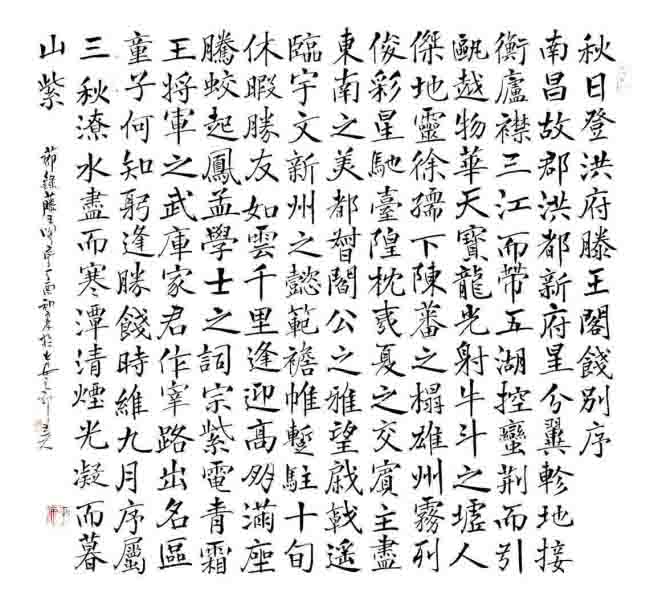 秋日登洪府滕王閣餞別序
南昌故郡洪都新府星分翼軫地接
衡廬襟三江而帶五湖控蠻荆而引
甌越物華天寶龍光射牛斗之墟人
傑地靈徐孺下陳蕃之榻雄州霧列
俊彩星馳臺隍枕夷夏之交賓主盡
東南之美都督閻公之雅望棨戟遙
臨宇文新州之懿範襜帷暫駐十旬
休暇勝友如雲千里逢迎高朋滿座
騰蛟起鳳孟學士之詞宗紫電青霜
王將軍之武庫家君作宰路出名區
童子何知躬逢勝餞時維九月序屬
三秋潦水盡而寒潭清煙光凝而暮
山紫
節錄藤王閣序丁酉初